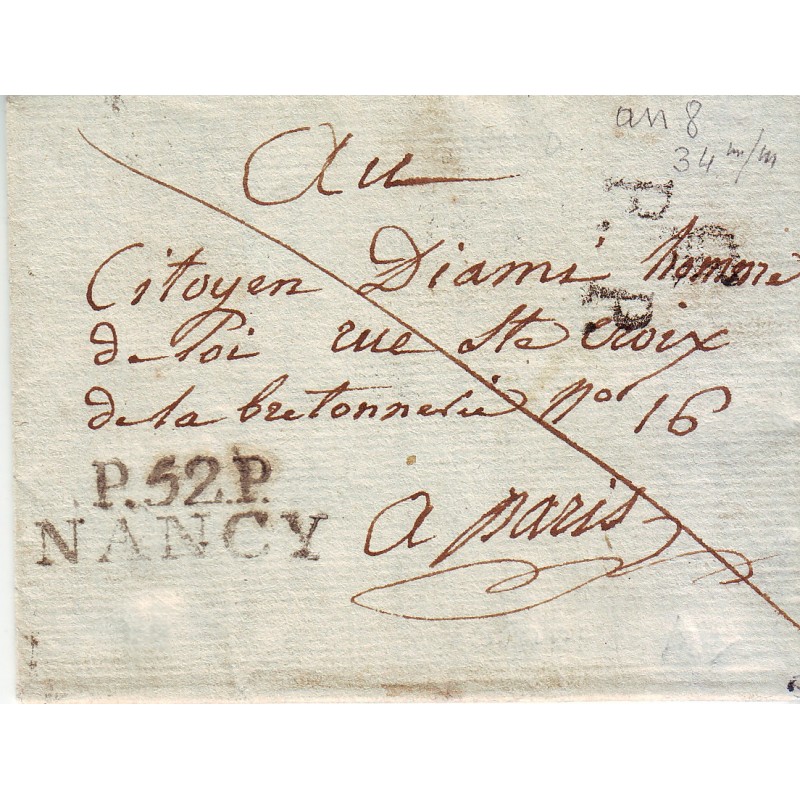 an 8
34 m/m
Au
P.P.
Citoyen Diami homme
de loi rue Ste croix
de la bretonnerie no 16
P.52.P.
NANCY
a paris